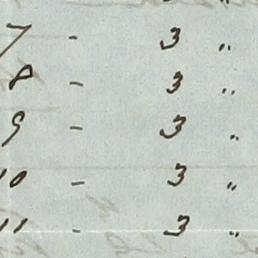 7 - 3 "
8 - 3 "
9 - 3 "
10 - 3 "
11 - 3 "